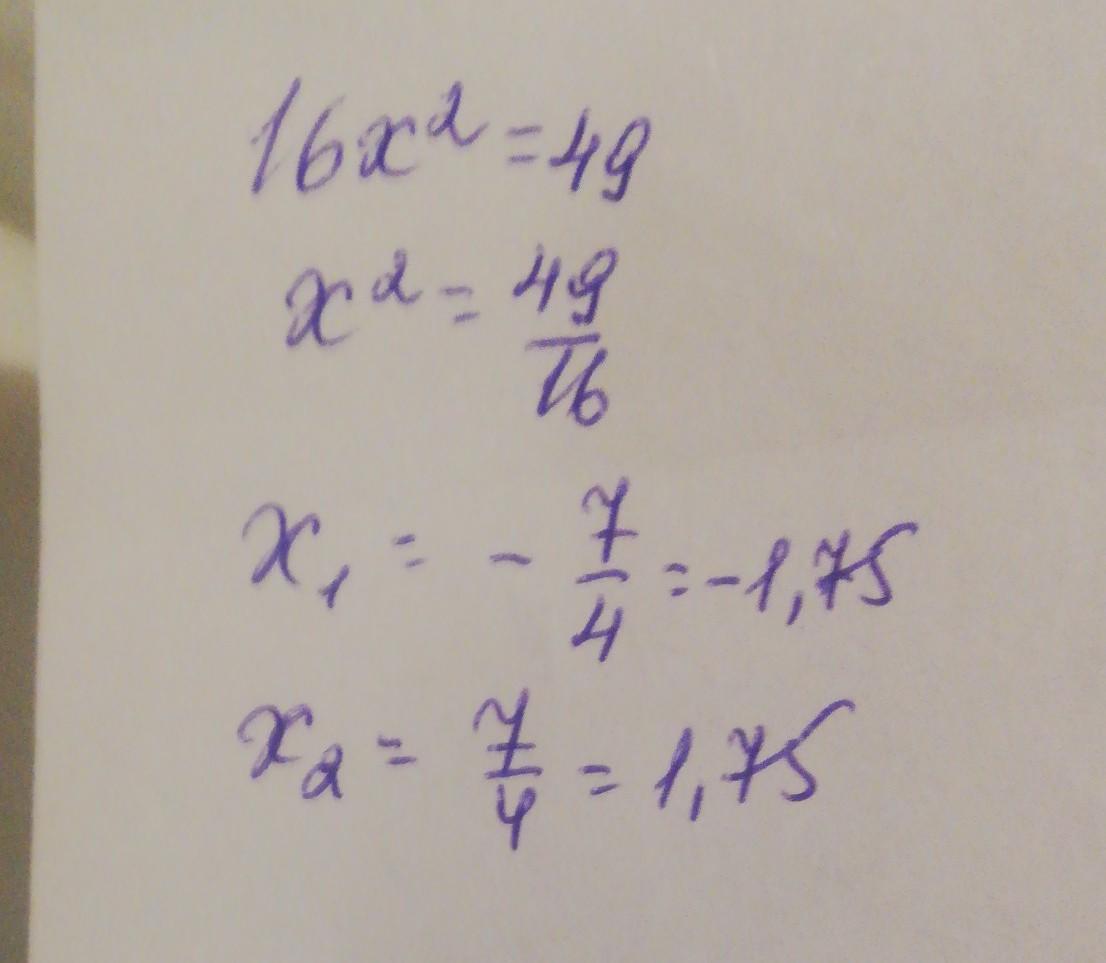 16x² = 49
x² = 49/16
x₁ = - 7/4 = -1,75
x₂ = 7/4 = 1,75